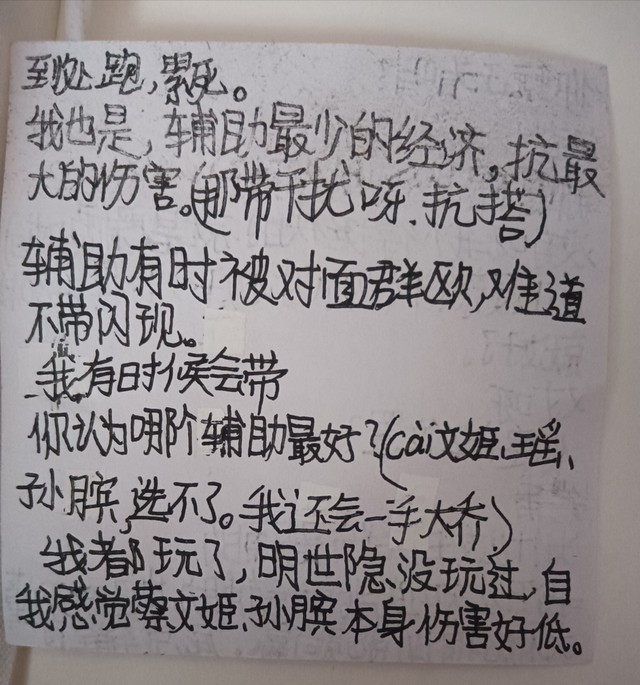 到处跑,累死。
我也是,辅助最少的经济,抗最
大的伤害。(那带干扰呀、抗塔)
辅助有时被对面群欧,难道
不带闪现。
我有时候会带
你认为哪阶辅助最好?(cài文姬、瑶、
孙膑,选不了。我还会一手大乔)
我都玩了,明世隐没玩过,自
我感觉蔡文姬、孙膑本身伤害好低。